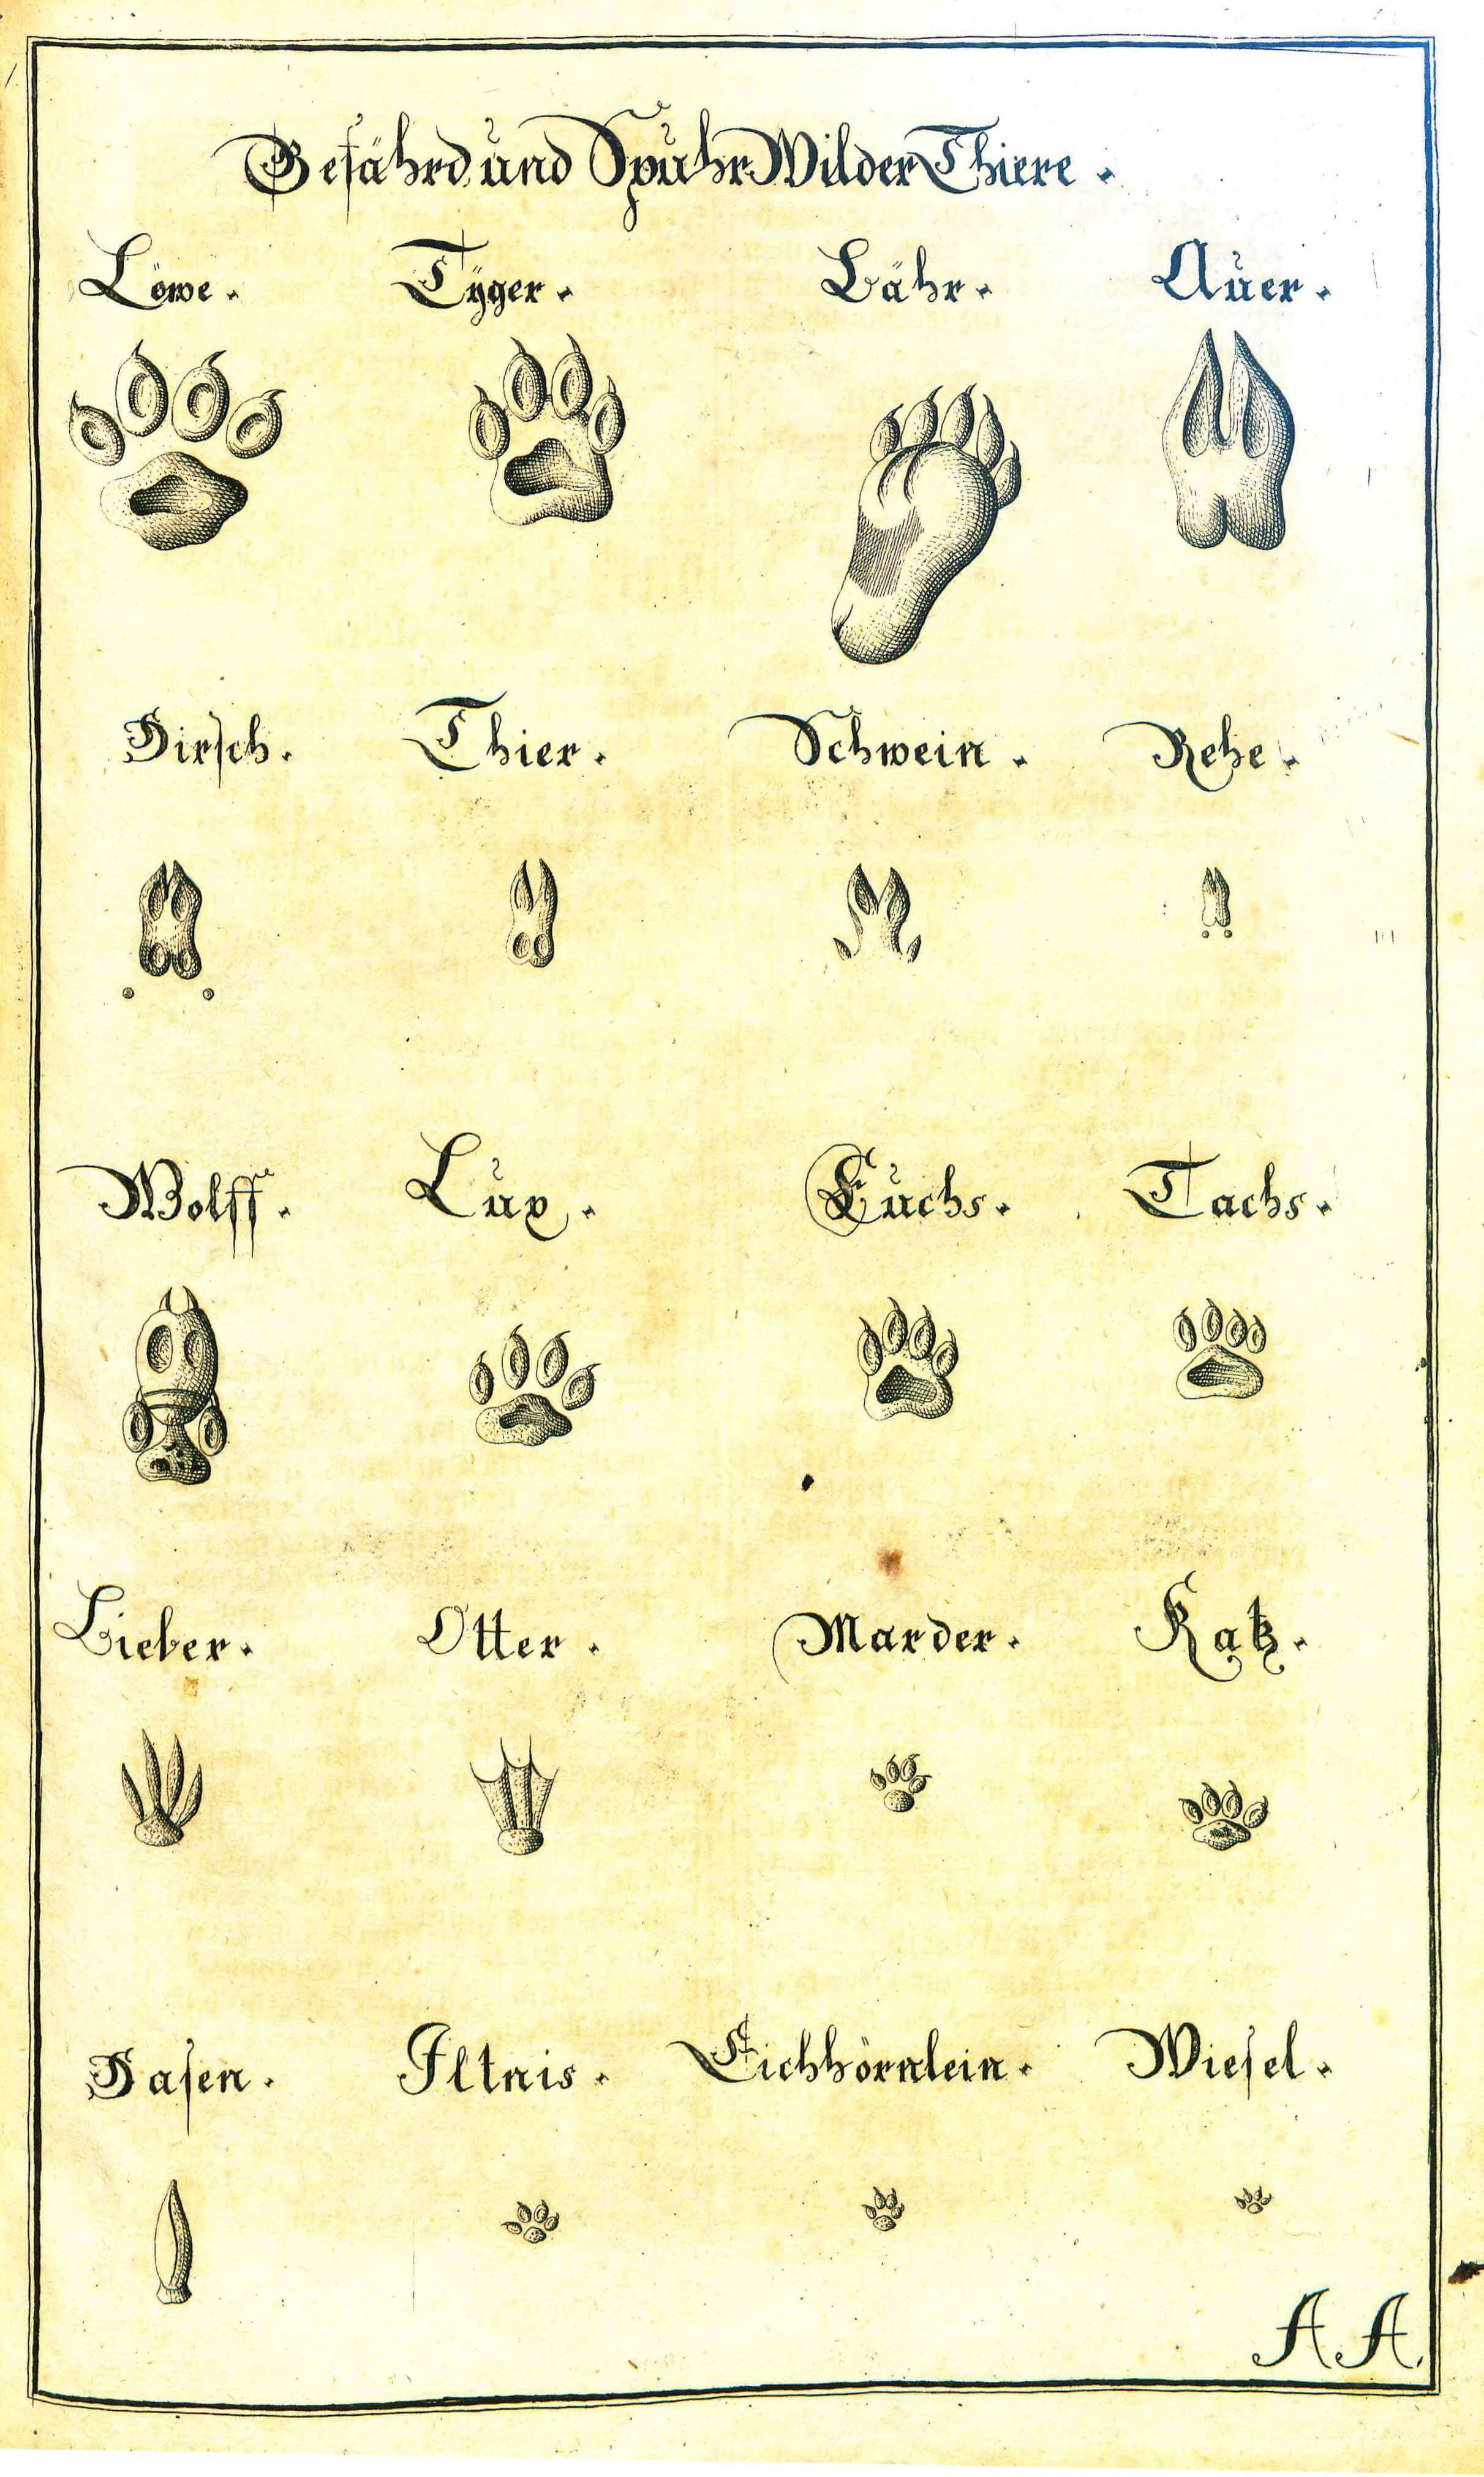 Gefährd und Spuhr Wilder Thiere.
Löwe. Tÿger. Bähr. Auer.
Hirsch. Thier. Schwein. Rehe.
Wolff. Lux. Fuchs. Tachs.
Bieber. Otter. Marder. Katz.
Hasen. Iltnis. Eichhörnlein. Wiesel.
A A.